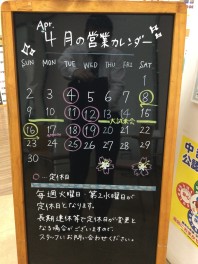 Apr.
4月の営業カレンダー
SUN MON TUE WED THU FRI SAT
1
2 3 4 5 6 7 8
9 10 11 12 13 14 15
16 17 18 19 20 21 22
23 24 25 26 27 28 29
30
○…定休日
毎週火曜日・第2水曜日が
定休日となります。
長期連休等で定休日が変更と
なる場合がございますので、
スタッフにお問い合わせください。